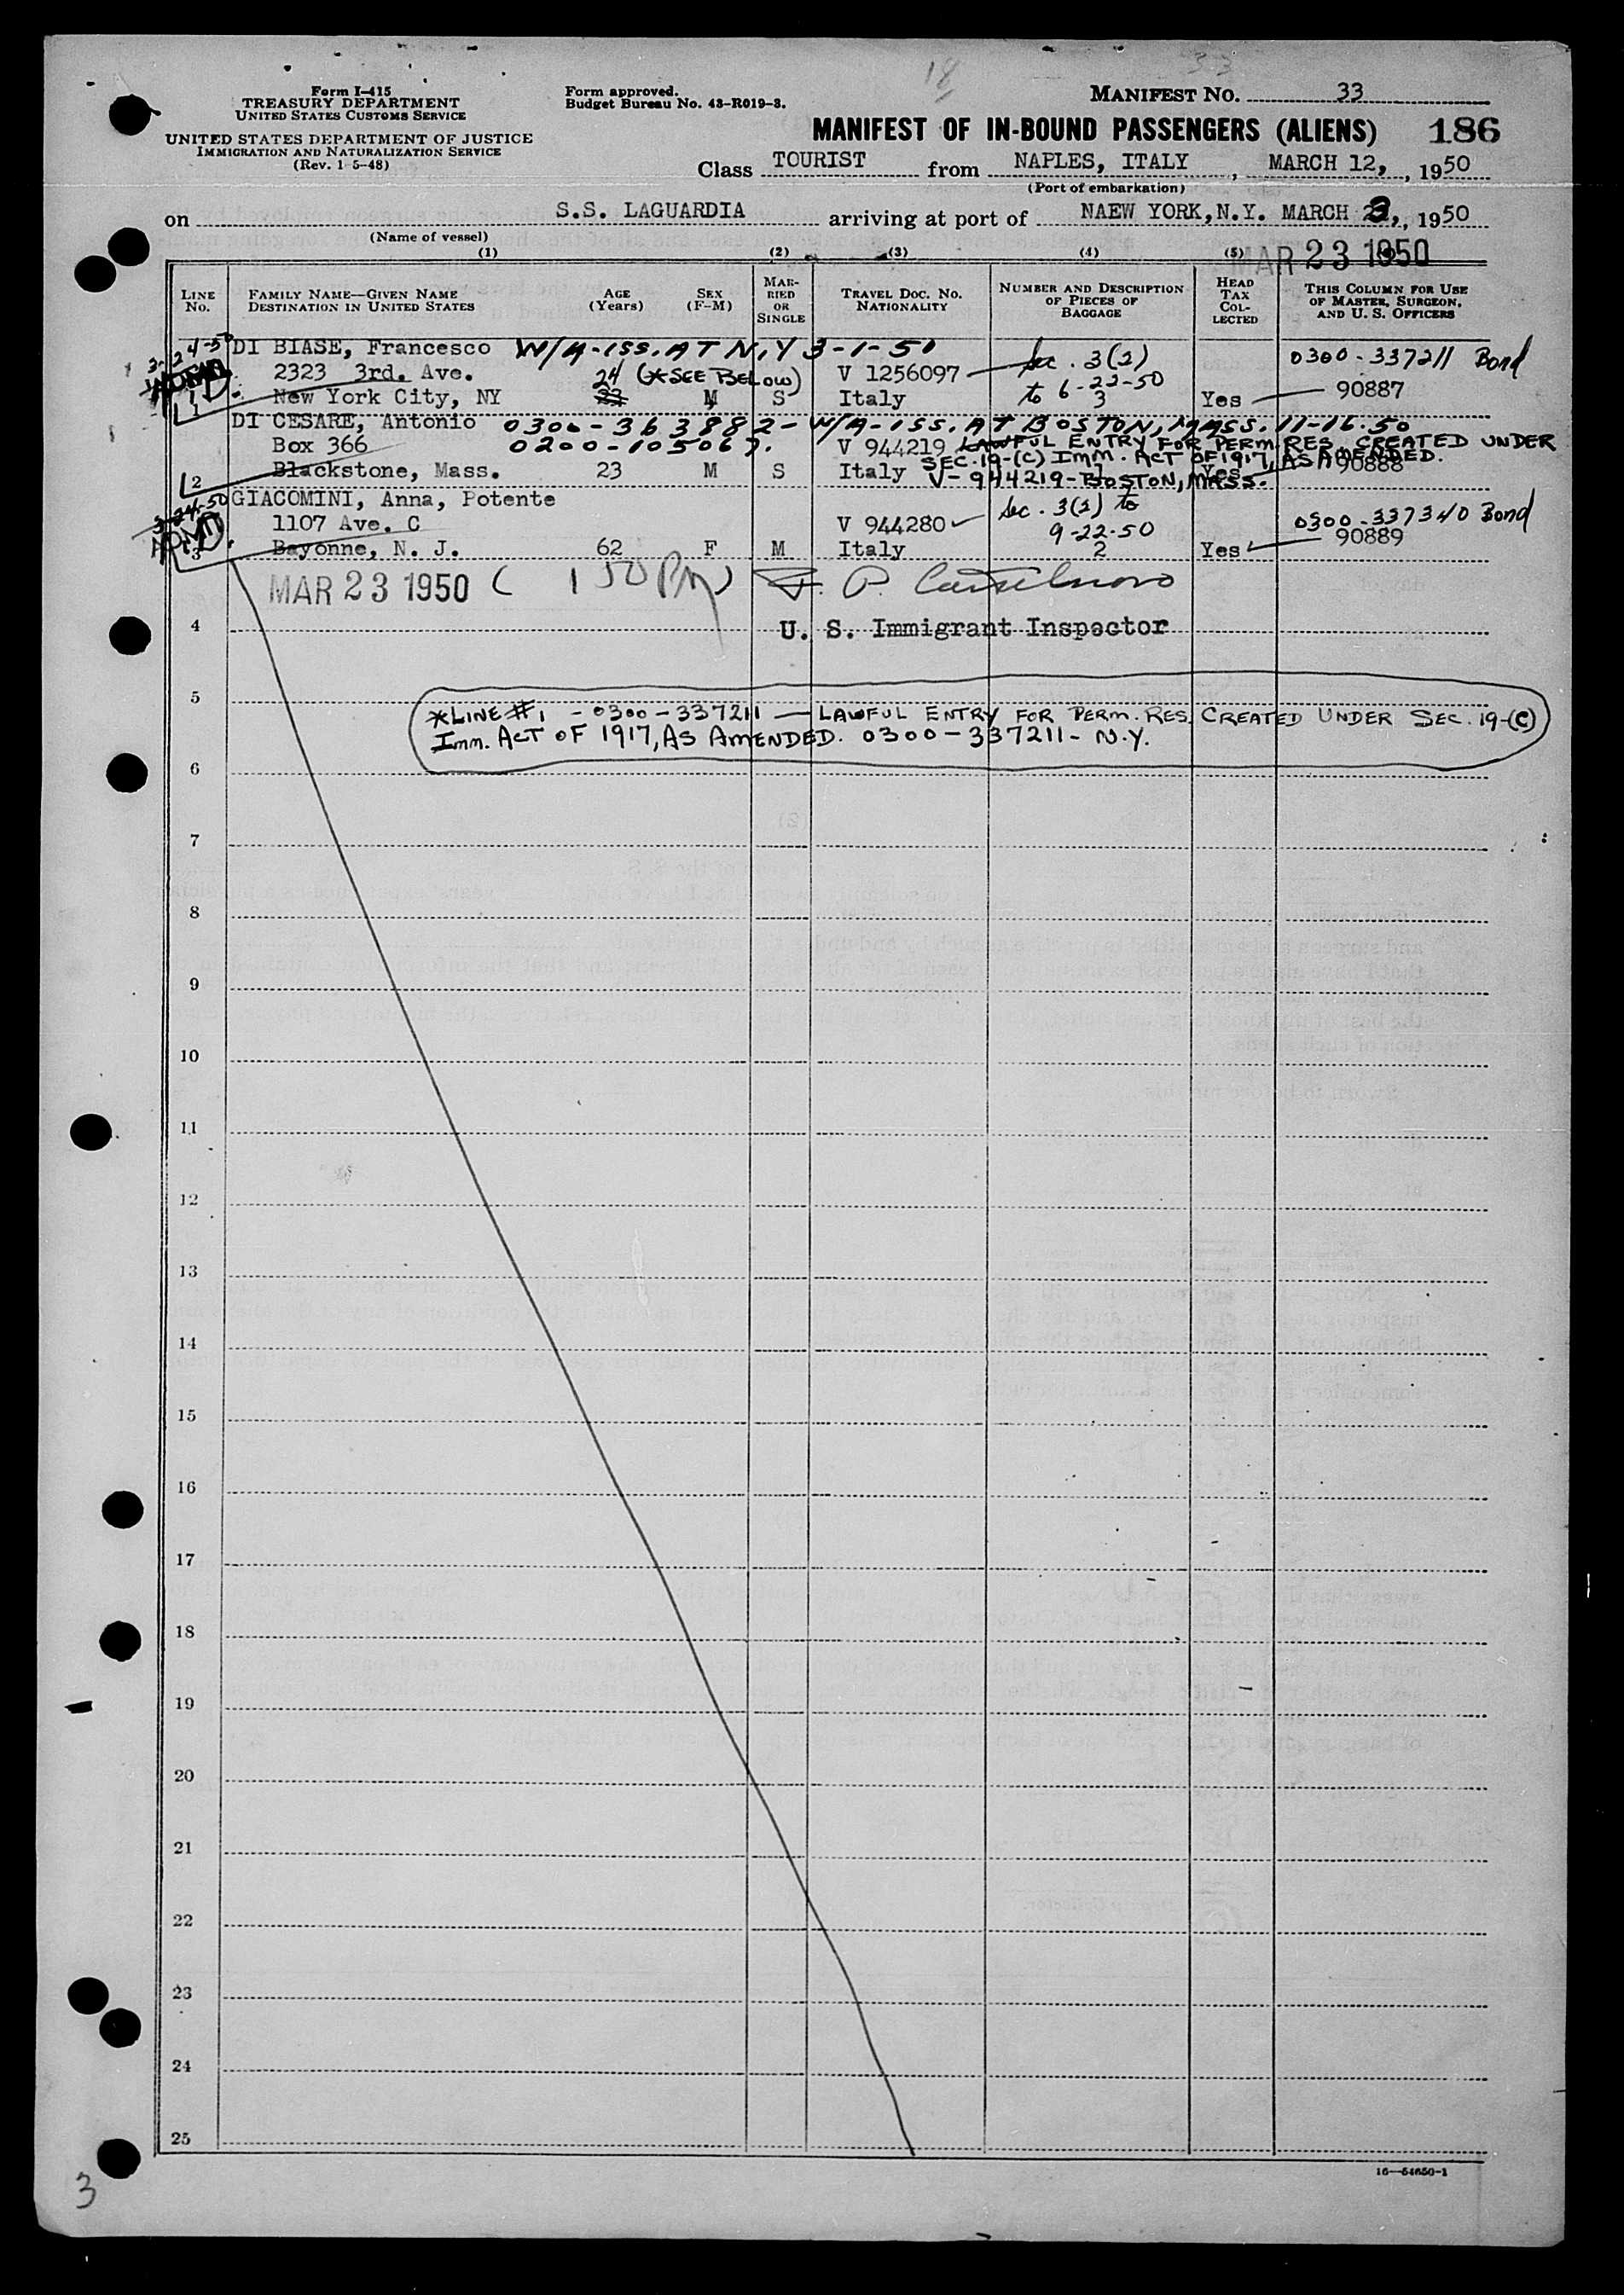 18 33
Form I-415
TREASURY DEPARTMENT
UNITED STATES CUSTOMS SERVICE
UNITED STATES DEPARTMENT OF JUSTICE
IMMIGRATION AND NATURALIZATION SERVICE
(Rev. 1-5-48)
Form approved.
Budget Bureau No. 43-R019-3.
MANIFEST NO. 33
MANIFEST OF IN-BOUND PASSENGERS (ALIENS) 186
Class TOURIST from NAPLES, ITALY, MARCH 12, , 1950
(Port of embarkation)
on S.S. LAGUARDIA arriving at port of NAEW YORK,N.Y. MARCH 23, , 1950
(Name of vessel)
MAR 23 1950
(1) (2) (3) (4) (5)
LINE No. FAMILY NAME—GIVEN NAME DESTINATION IN UNITED STATES AGE (Years) SEX (F-M) MARRIED OR SINGLE TRAVEL DOC. NO. NATIONALITY NUMBER AND DESCRIPTION OF PIECES OF BAGGAGE HEAD TAX COLLECTED THIS COLUMN FOR USE OF MASTER, SURGEON, AND U. S. OFFICERS
3-24-50
DI BIASE, Francesco W/A-ISS. AT N.Y 3-1-50 Sec. 3(2) 0300-337211 Bond
2323 3rd. Ave. 24 (*SEE BELOW) V 1256097 to 6-22-50
1 New York City, NY 23 M S Italy 3 Yes 90887
DI CESARE, Antonio 0300-363882- W/A-ISS. AT BOSTON, MASS. 11-16-50
Box 366 0200-105067. V 944219 LAWFUL ENTRY FOR PERM. RES. CREATED UNDER
SEC. 19-(C) IMM. ACT OF 1917, AS AMENDED.
2 Blackstone, Mass. 23 M S Italy 1 Yes 90888
V-944219-BOSTON, MASS.
3-24-50
GIACOMINI, Anna, Potente Sec. 3(2) to
1107 Ave. C V 944280 9-22-50 0300-337340 Bond
3 Bayonne, N. J. 62 F M Italy 2 Yes 90889
MAR 23 1950 ( 150 PM)
4 U. S. Immigrant Inspector
5
*LINE #1 - 0300-337211 — LAWFUL ENTRY FOR PERM. RES. CREATED UNDER SEC. 19-(C)
IMM. ACT OF 1917, AS AMENDED. 0300-337211- N.Y.
6
7
8
9
10
11
12
13
14
15
16
17
18
19
20
21
22
23
24
25
16—54650-1
3